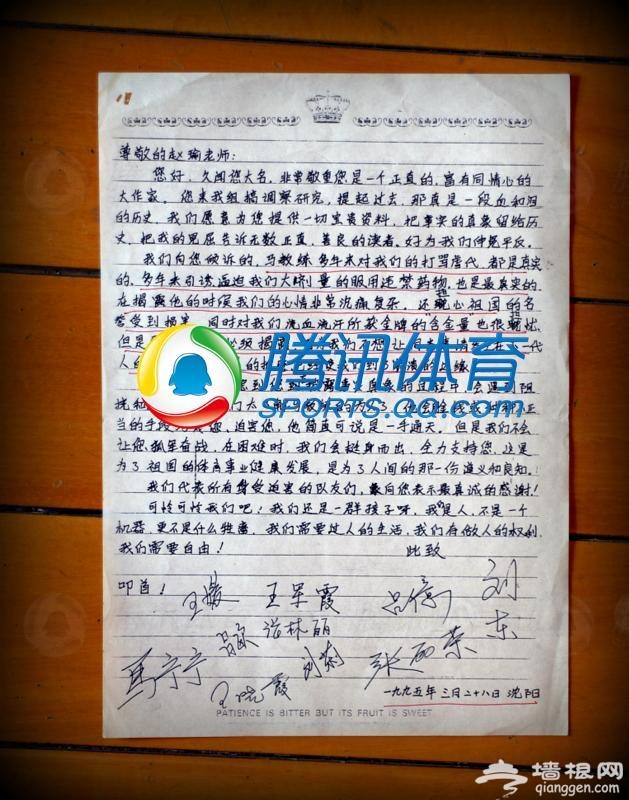 尊敬的赵瑜老师:
您好,久闻您大名,非常敬重您是一个正直的,富有同情心的
大作家,您来我组搞调察研究,提起过去,那真是一段血和泪
的历史,我们愿意为您提供一切宝贵资料,把事实的真象留给历
史,把我的冤屈告诉无数正直,善良的读者。好为我们伸冤平反。
我们向您倾诉的,马教练多年来对我们的打骂虐代,都是真实
的,多年来引诱逼迫我们大剂量的服用违禁药物,也是最真实的。
在揭露他的时候我们的心情非常沉痛复杂,还担心祖国的名
誉受到损害,同时对我们流血流汗所获金牌的"含金量"也很担忧
但是
腾讯体育
SPORTS.QQ.COM
当的手段 迫害您,他简直可说是一手通天,但是我们不会
让您孤军奋战,在困难时,我们会挺身而出,全力支持您,这是
为了祖国的体育事业健康发展,是为了人间的那一份道义和良知。
我们代表所有曾受迫害的队友们,最向您表示最真诚的感谢!
可怜可怜我们吧!我们还是一群孩子呀,我们是人,不是一个
机器,更不是什么牲畜,我们需要过人的生活,我们有做人的权利
我们需要自由! 此致
叩首!
王军霞 刘东
张林丽
马宁宁 王晓霞 刘莉 张丽荣
一九九五年三月二十八日沈阳
PATIENCE IS BITTER BUT ITS FRUIT IS SWEET
墙根网
qianggen.com